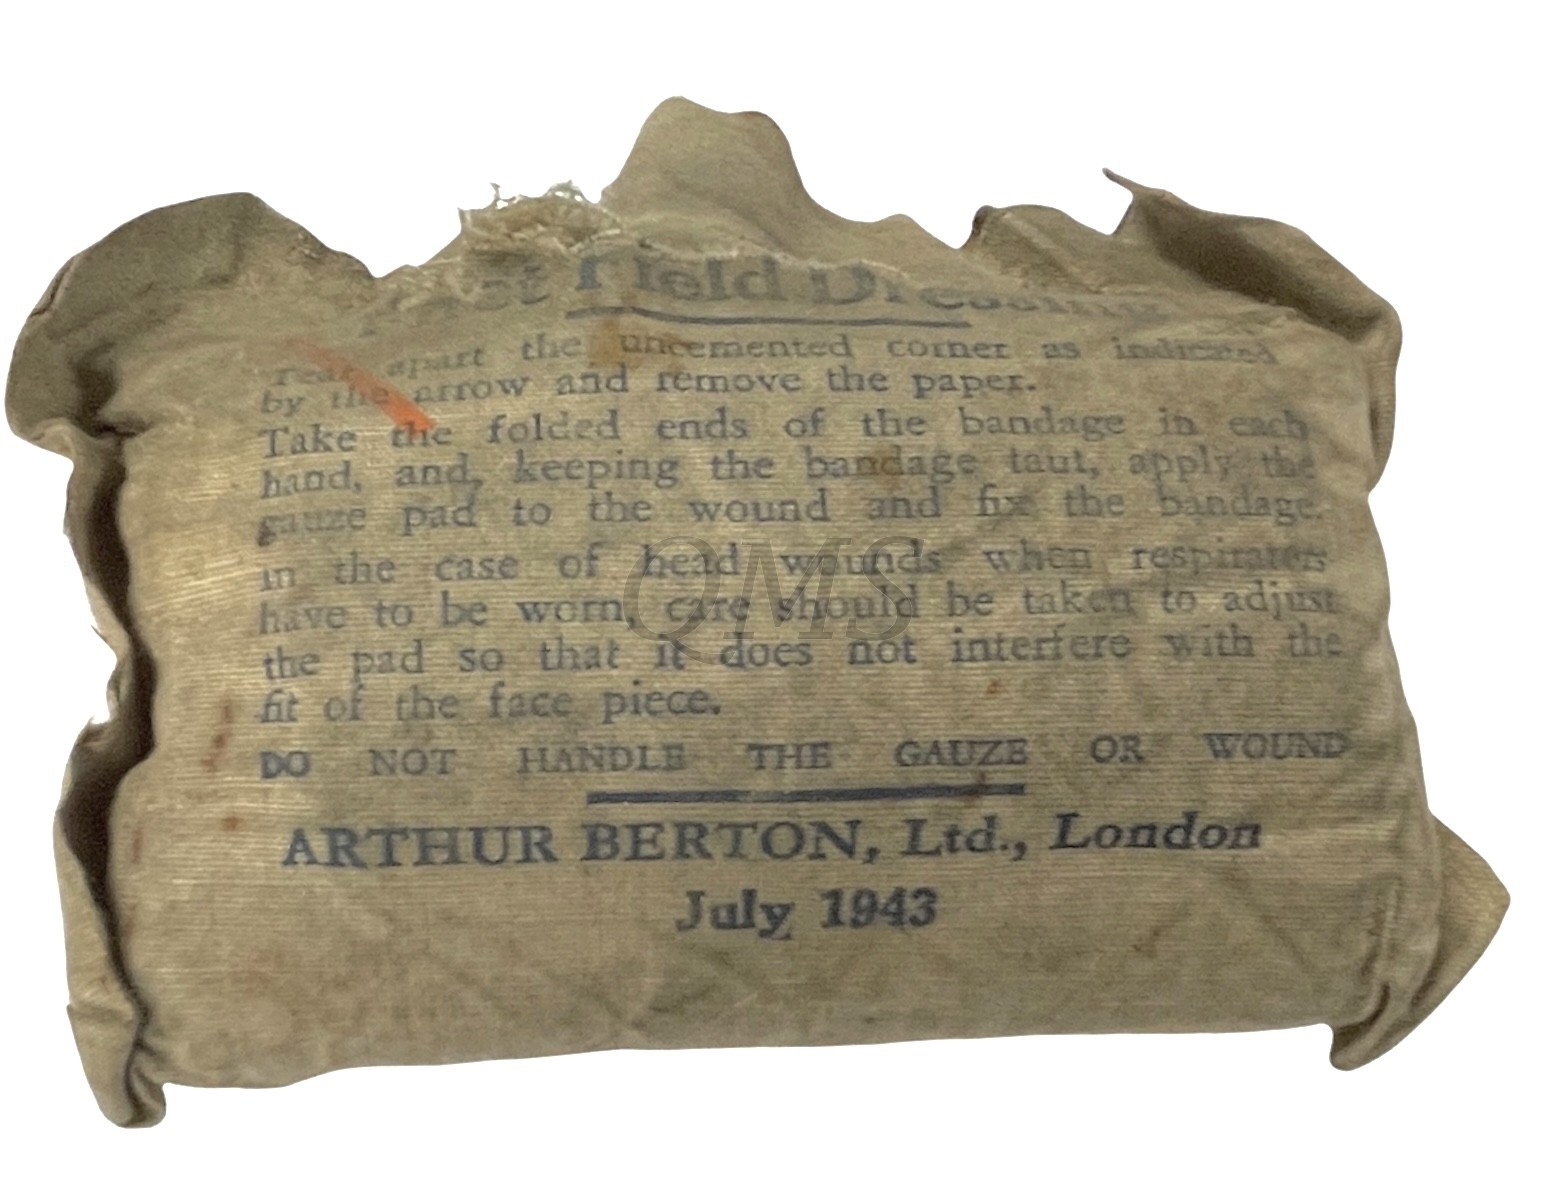 First Field Dressing
Tear apart the uncemented corner as indicated
by the arrow and remove the paper.
Take the folded ends of the bandage in each
hand, and, keeping the bandage taut, apply the
gauze pad to the wound and fix the bandage.
In the case of head wounds when respirators
have to be worn, care should be taken to adjust
the pad so that it does not interfere with the
fit of the face piece.
DO NOT HANDLE THE GAUZE OR WOUND
ARTHUR BERTON, Ltd., London
July 1943
QMS